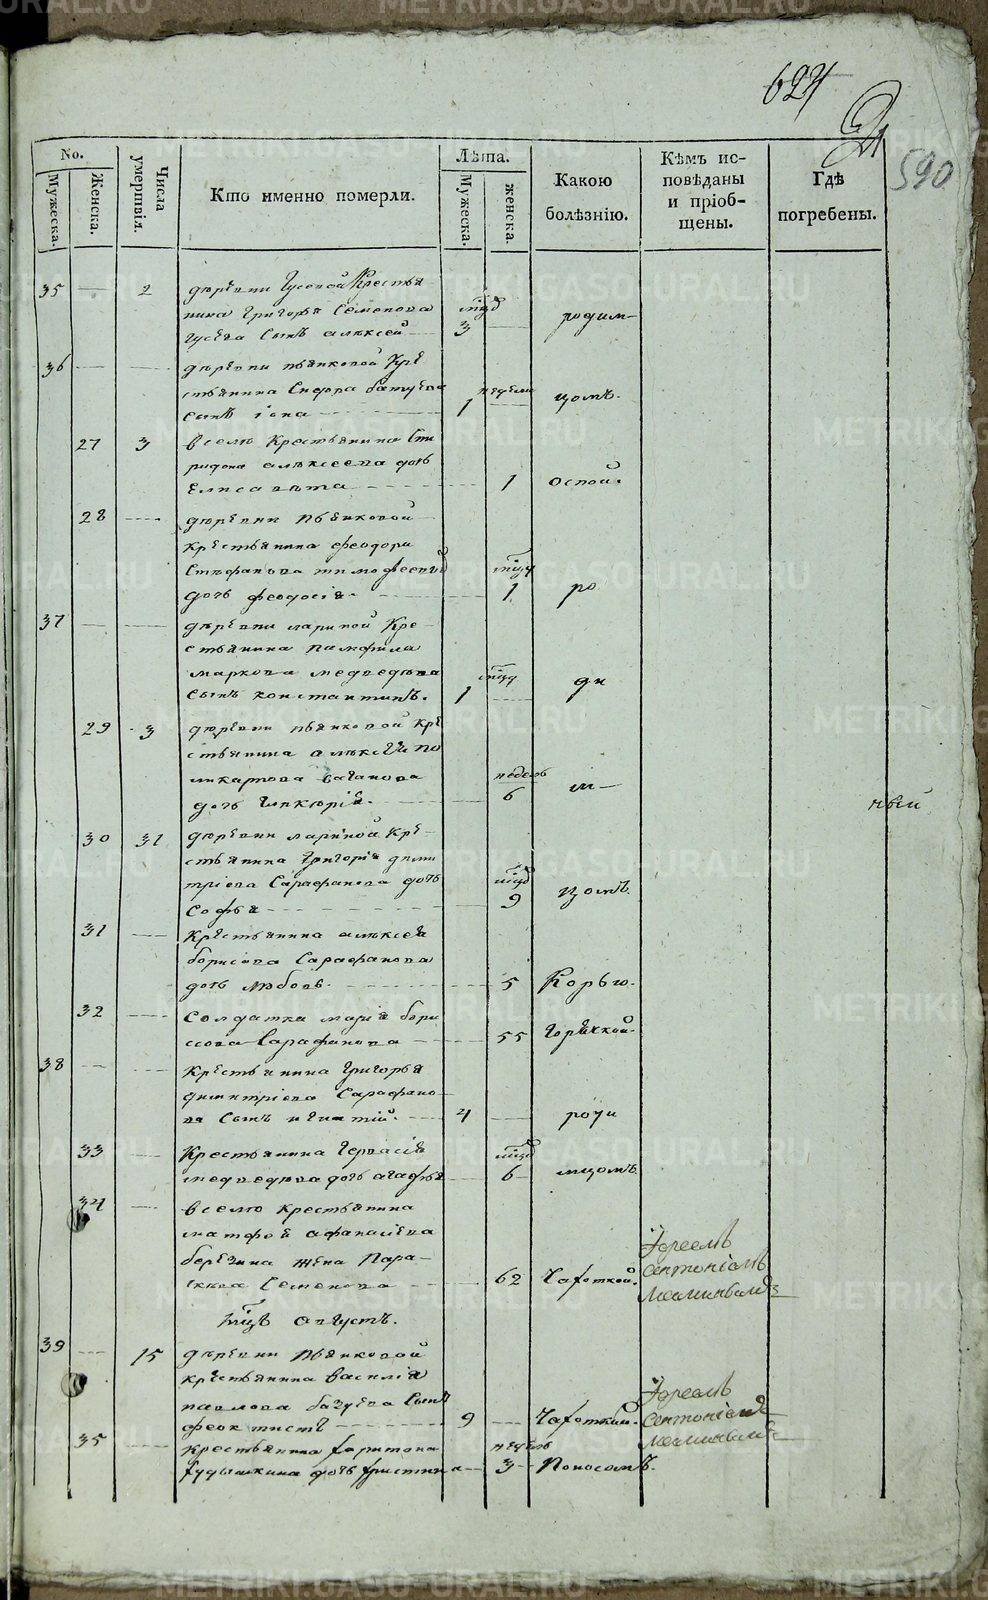 624
590
No.
Мужеска.
Женска.
Числа умертвія.
Кто именно померли.
Лѣта.
Мужеска.
женска.
Какою болѣзнію.
Кѣмъ исповѣданы и пріобщены.
Гдѣ погребены.
35 — 2 деревни Гусевой Крестья
нина Григорья Семенова мцд
Гусева сынъ алексей 3 родим
36 деревни пьянковой Кре
стьянина сынъ іона 1 недели цомъ.
27 3 в селѣ Крестьянина Спи
ридона алексеева дочь
Елисавета 1 Оспой.
28 деревни Пьянковой
крестьянина феодора
Стефанова тимофеевой мцд
дочь феодосія 1 ро
37 деревни лариной Кре
стьянина Памфила
маркова медведева мцд
сынъ константинъ. 1 ди
29 3 деревни пьянковой кре
стьянина алексея по
ликарпова ваганова недель
дочь гликерія. 6 м
ный
30 31 деревни лариной Кре
стьянина Григорія дими
тріева Сарафанова дочь мцд
Софья 9 цомъ
31 Крестьянина алексея
борисова Сарафанова
дочь любовь. 5 Корью.
32 Солдатка марія бори
сова Сарафанова 55 Горячкой.
38 Крестьянина Григорья
димитріева Сарафано
ва Сынъ игнатій. 4 роди
33 Крестьянина Гервасія мцд
медведева дочь агафья 6 мцомъ
34 в селѣ крестьянина
матфея афанасіева
березина жена Пара
скева Семенова 62 Чахоткой.
Іереемъ
Антоніемъ
мцъ августъ.
39 15 деревни Пьянковой
крестьянина василія
павлова базуева Сынъ
феоктистъ 9 Чахоткой.
Іереемъ
Антоніемъ
35 крестьянина харитона недель
дочь христина 3 Поносомъ.
METRIKI.GASO-URAL.RU